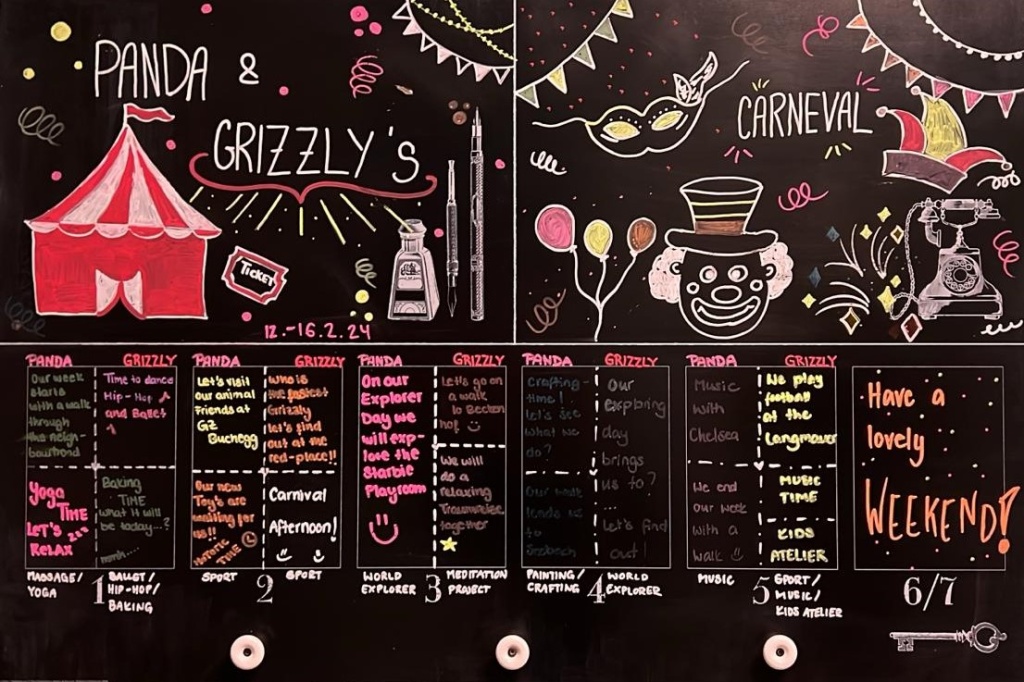 PANDA &
GRIZZLY's
TICKET
12.-16.2.24
CARNEVAL
PANDA GRIZZLY
Our week
starts
with a walk
through
the neigh-
bourhood
Yoga
TIME
LET'S
RELAX
Time to dance
Hip-Hop
and Ballet
Baking
TIME
what it will
be today...?
MASSAGE/
YOGA
1
BALLET/
HIP-HOP/
BAKING
PANDA GRIZZLY
Let's visit
our animal
Friends at
GZ
Buchegg
Our new
Toy's are
waiting for
us!!
TIME
Who is
the fastest
Grizzly
let's find
out at the
red-place!!
Carnival
Afternoon!
SPORT
2
SPORT
PANDA GRIZZLY
On our
Explorer
Day we
will exp-
lore the
Starbie
Playroom
Let's go on
a walk
to Becken
hof
We will
do a
relaxing
Traumreise
together
WORLD
EXPLORER
3
MEDITATION
PROJECT
PANDA GRIZZLY
Crafting-
time!
Let's see
what we
do?
Our walk
leads us
to
Our
exploring
day
brings
us to?
...
Let's find
out!
PAINTING/
CRAFTING
4
WORLD
EXPLORER
PANDA GRIZZLY
Music
with
Chelsea
We end
our week
with a
walk
We play
football
at the
Langmauer
MUSIC
TIME
KIDS
ATELIER
MUSIC
5
SPORT/
MUSIC/
KIDS ATELIER
Have a
lovely
WEEKEND!
6/7